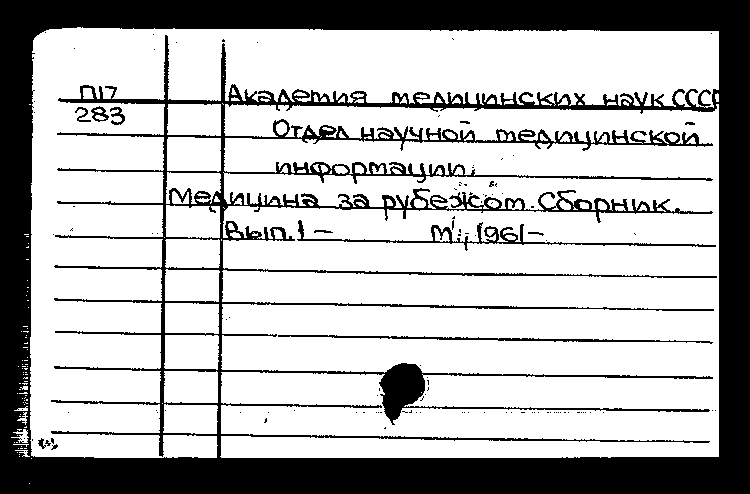 П17
283
Академия медицинских наук СССР
Отдел научной медицинской
информации.
Медицина за рубежом. Сборник.
Вып. 1 – М., 1961–